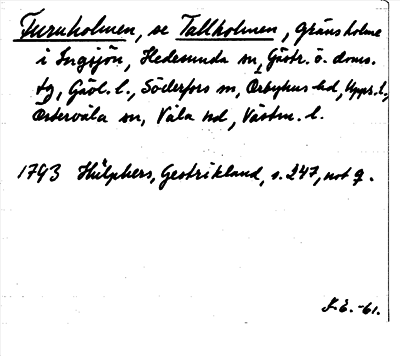 Furuholmen, se Tallholmen, gränsholme
i Ingsjön, Hedesunda sn, Gästr. ö. doms.
tg, Gävl. l., Söderfors sn, Örbyhus hd, Upps. l.,
Östervåla sn, Våla hd, Västm. l.
1793 Hülphers, Gestrikland, s. 247, not q.
J.E. -61.